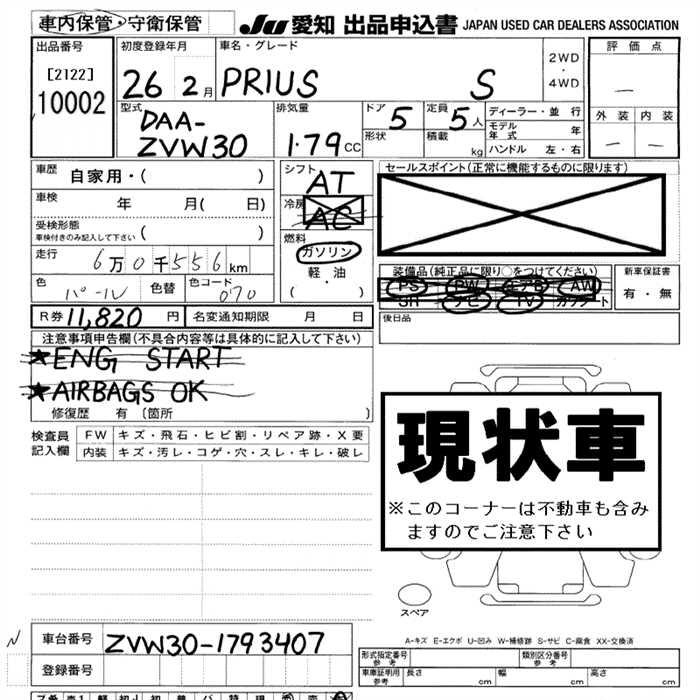 車内保管・守衛保管 JU 愛知 出品申込書 JAPAN USED CAR DEALERS ASSOCIATION
出品番号 初度登録年月 車名・グレード 2WD ・ 4WD 評価点
[2122] 10002 26 2月 PRIUS S —
型式 DAA-ZVW30 排気量 1.79CC ドア 5 定員 5人 ディーラー・並行 外装 内装
形状 積載 kg モデル年式 年 — —
ハンドル 左・右
車歴 自家用・( ) シフト AT セールスポイント(正常に機能するものに限ります)
車検 年 月( 日) 冷房 AC
受検形態
車検付きのみ記入して下さい ( ) 燃料 ガソリン
走行 6万0千556km 軽・油 装備品(純正品に限り〇をつけてください) 新車保証書
色 パール 色替 色コード 070 ( ・ ) PS PW エアB AW 有・無
SR ナビ TV カワシート
R券 11,820円 名変通知期限 月 日 後日品
注意事項申告欄(不具合内容等は具体的に記入して下さい)
★ENG START
★AIRBAGS OK
修復歴 有〔箇所 〕
検査員記入欄 FW キズ・飛石・ヒビ割・リペア跡・X要
内装 キズ・汚レ・コゲ・穴・スレ・キレ・破レ
現状車
※このコーナーは不動車も含み
ますのでご注意下さい
スペア
A-キズ E-エクボ U-凹み W-補修跡 S-サビ C-腐食 XX-交換済
N 車台番号 ZVW30-1793407
登録番号
形式指定番号 参考 類別区分番号 参考
車庫証明用 参考 長さ cm 幅 cm 高さ cm